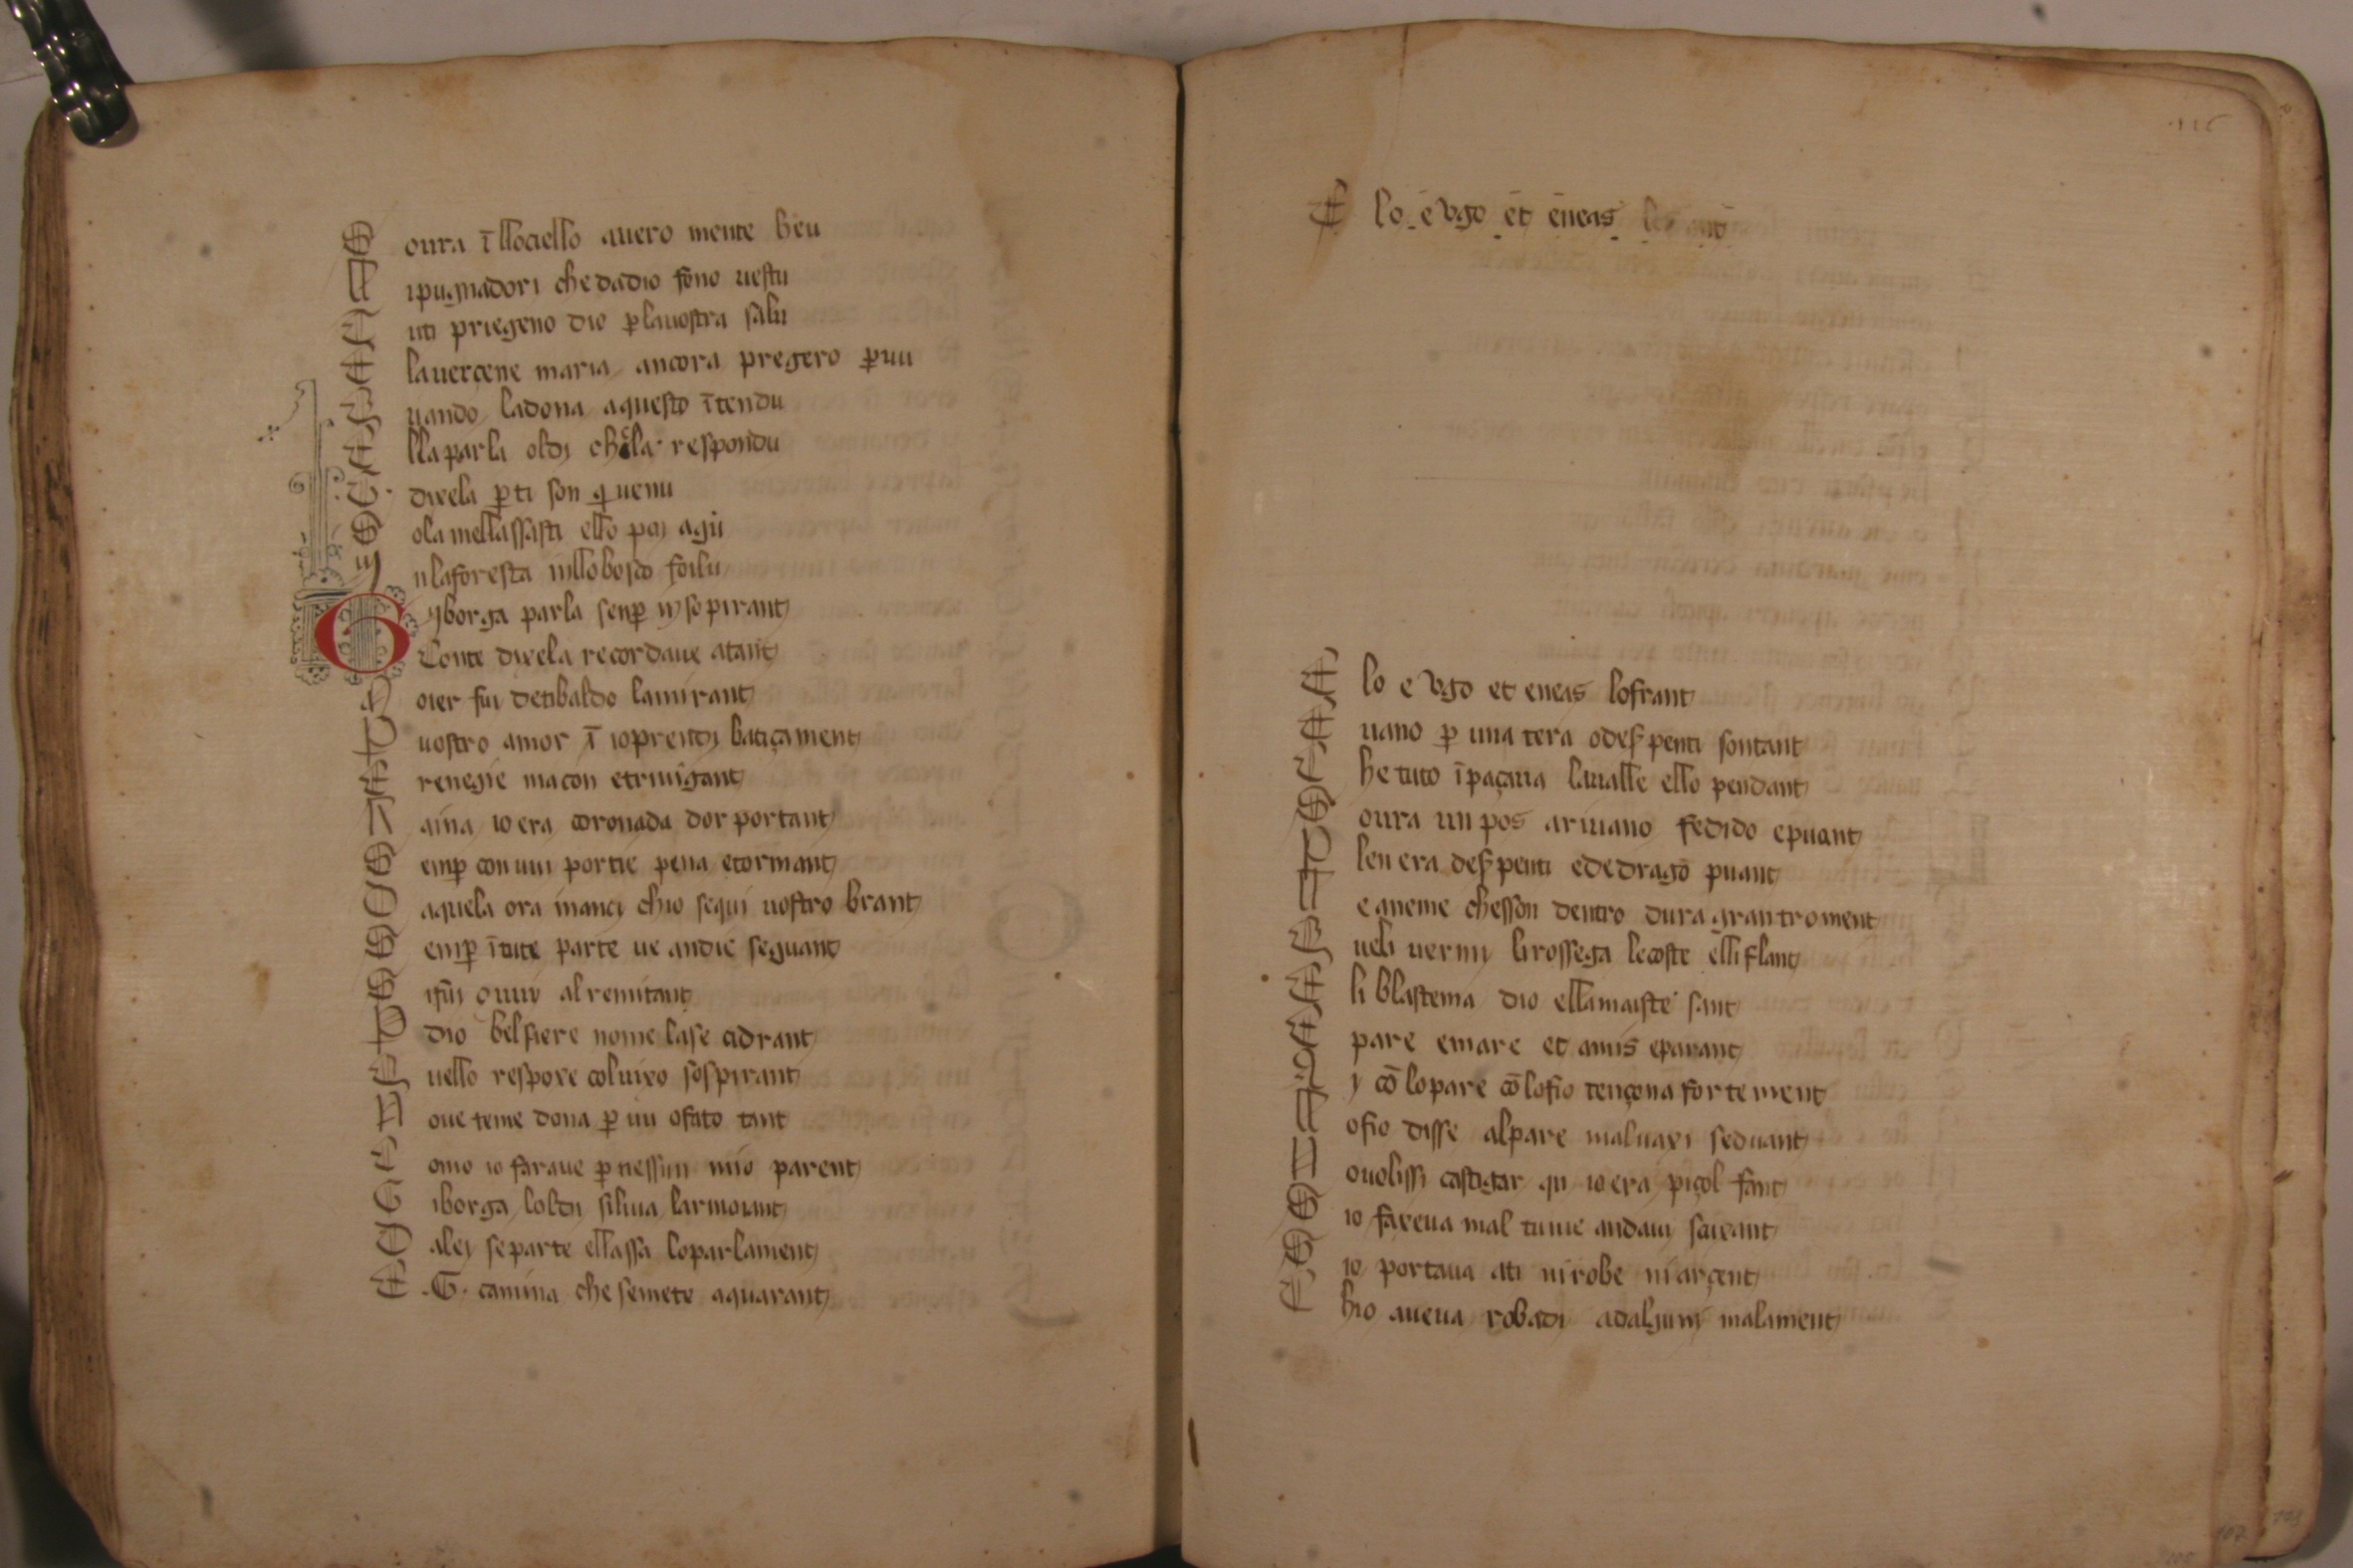 S oura ī llociello auero mente beu
A ipugnadori che dadio sono uestu
E uti priegeno dio ꝑ lauostra salu
E lauerçene maria ancora pregero ꝑ uu
Q uando ladona aquesto ītendu
E lla parla oldi chela respondu
C dixela ꝑ ti son q uenu
S ola mellassasti ello poi agu
I nlaforesta inllobosco foilu
G yborga parla senꝑ in sopirant
Conte dixela recordaue atant
M oier fui detibaldo lamirant
P uostro amor ī ioprendi batiçament
E renegie macon etruigant
R aina io era coronada dor portant
S emꝑ con uui portie pena etormant
D aquela ora inanci chio sequi uostro brant
S emꝑ ītute parte ue andie seguant
S
O dio bel siere nome lase adrant
Q uello respoxe coluixo sospirant
N oue teme dona ꝑ uu ofato tant
C omo io faraue ꝑ nessun mio parent
G iborga loldi silina larmoiant
D aley separte ellassa loparlament
E .G. camina chesemete aquarant
E lo e vgo et eneas
E lo e vgo et eneas lofrant
E uano ꝑ una tera odesꝑenti sontant
C he tuto īpaçaua laualle ello pendant
S oura un pos ariuano fedido epuant
P len era desꝑenti ededragō puant
E eaneme chesson dentro dura gran troment
Q ueli uermi lirossega lecoste elli flant
E li blastema dio ellamaiste sant
E pare emare et amis eparant
I cō lopare cō lofio tençona fortement
L ofio disse alpare maluaxi seduant
N ouolissi castigar qn io era piçol fant
S io faxeua mal tume andaui scuxant
S io portaua ati ni robe ni arçent
C hio aueua robadi adalguni malament